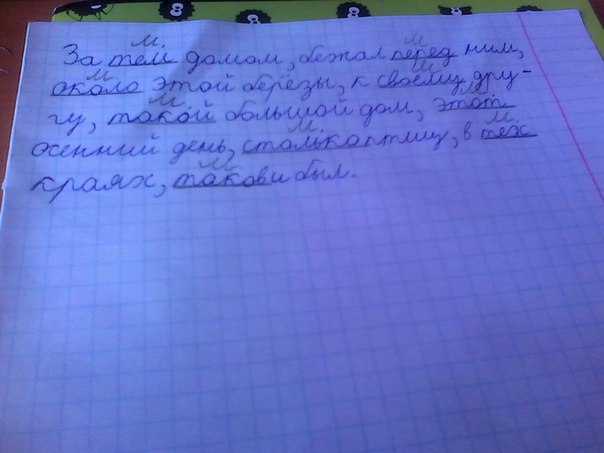 м. м
За тем домом, бежал перед ним,
м м
около этой берёзы, к своему дру-
м м
гу, такой большой дом, этот
м. м
осенний день, столько птиц, в тех
м
краях, такови был.
8 8 8 8